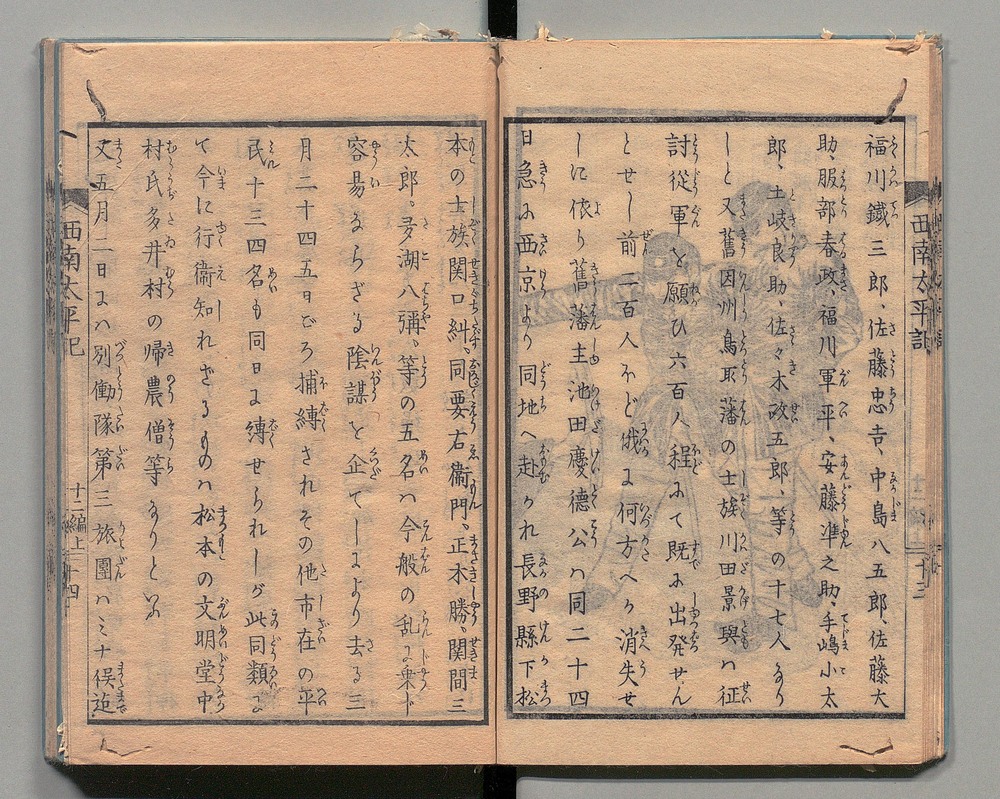 福川鐵三郎、佐藤忠吉、中島八五郎、佐藤大
助、服部春政、福川軍平、安藤準之助、手嶋小太
郎、土岐良助、佐々木政五郎、等の十七人なり
しと又舊因州鳥取藩の士族川田景與ハ征
討従軍を願ひ六百人程にて既に出発せん
とせし前二百人ほど俄に何方へか消失せ
しに依り舊藩主池田慶德公ハ同二十四
日急に西京より同地へ赴かれ長野縣下松
本の士族関口糾、同要右衞門、正木勝関間三
太郎、多湖八彌、等の五名ハ今般の乱に乗じ
容昜ならざる陰謀を企てしにより去る三
月二十四五日ごろ捕縛されその他市在の平
民十三四名も同日に縛せられしが此同類に
て今に行衞知れざるものハ松本の文明堂中
村氏多井村の帰農僧等なりといふ
又五月二日にハ別働隊第三旅團ハミナ俣迠
西南太平記
十二編上
二十四
西南太平記